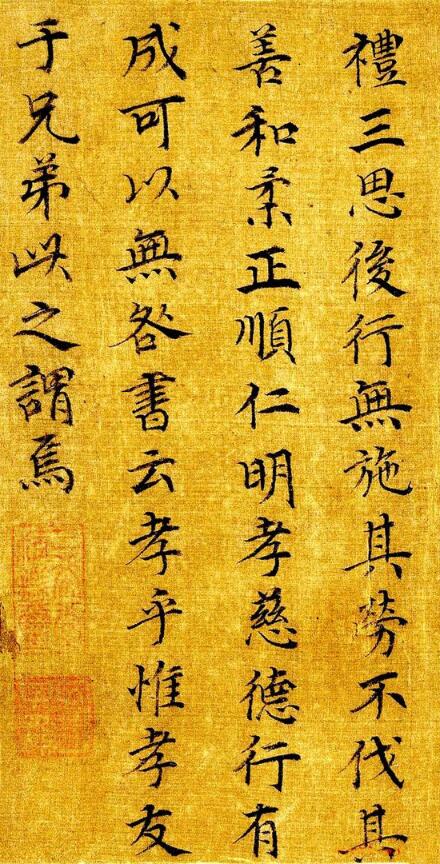 禮三思後行無施其勞不伐其
善和柔正順仁明孝慈德行有
成可以無咎書云孝乎惟孝友
于兄弟此之謂焉